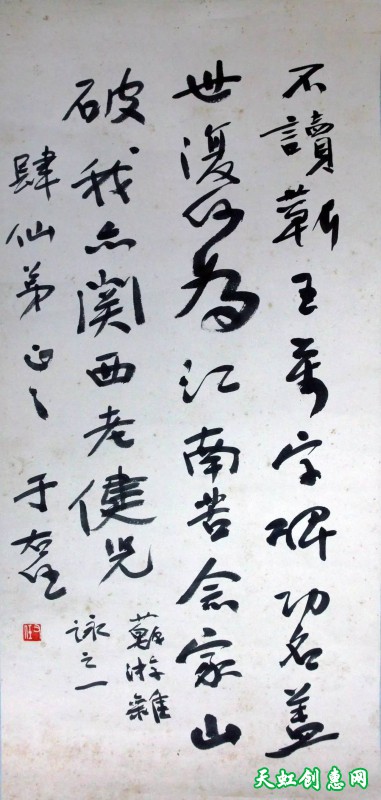 不讀蘄王萬字碑功名蓋
世復何為江南苦念家山
破我亦関西老健児
蘇游雜
詠之一
肆仙弟正之 于右任
天虹创惠网